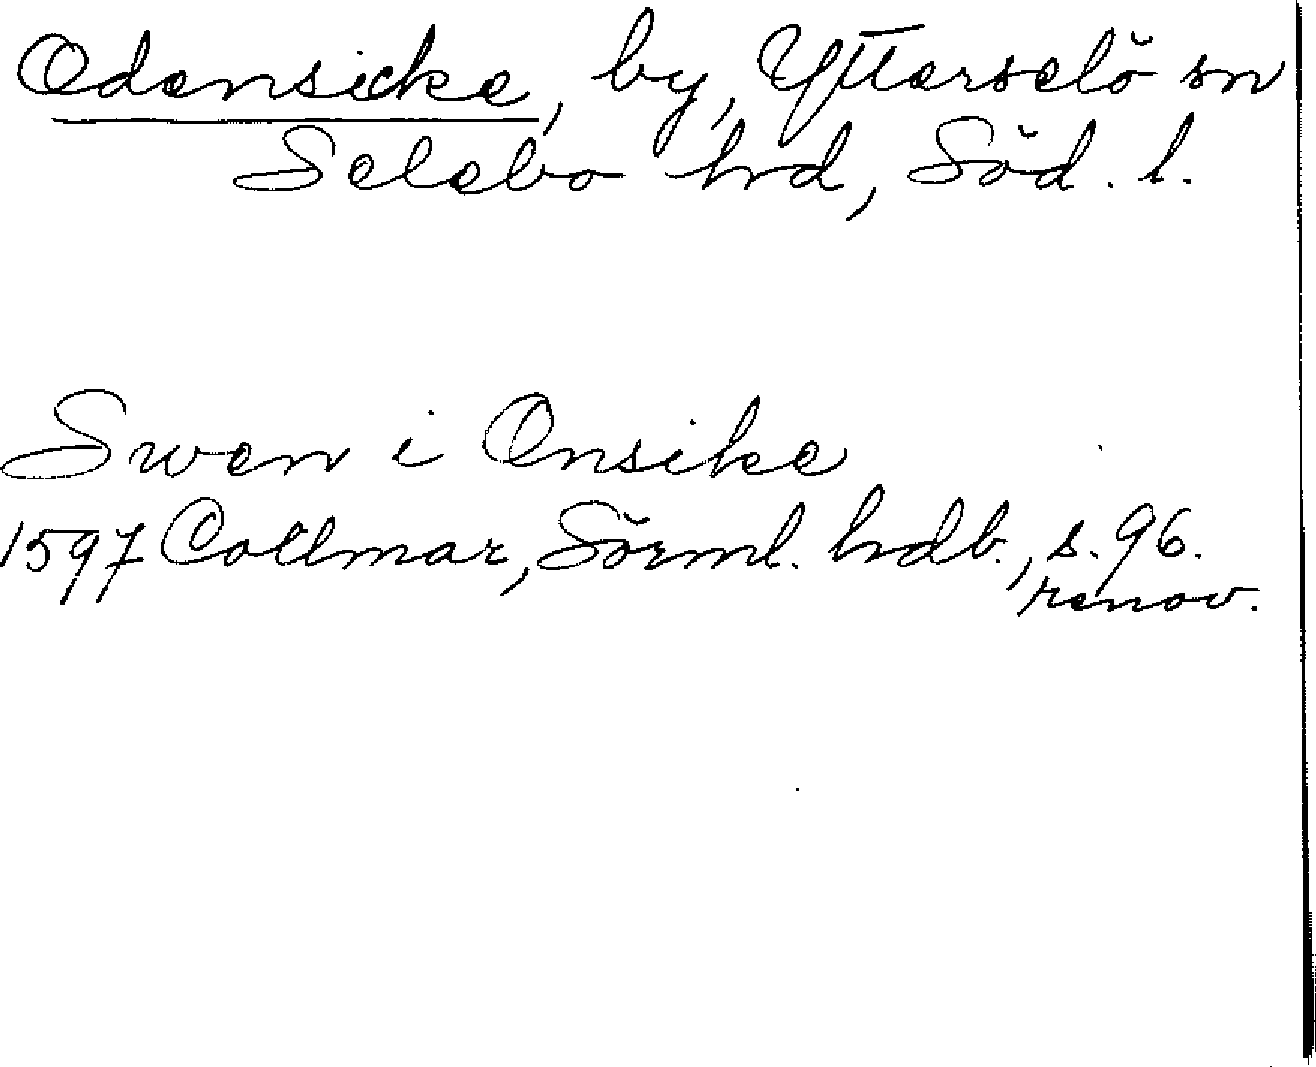 Odensicke, by, Ytterselö sn
Selebo hrd, Söd. l.
Swen i Onsike
1597 Collmar, Sörml. hdb., s. 96.
renov.